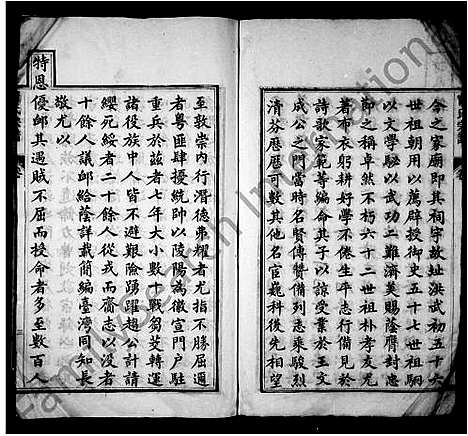 今之家廟即其祠宇故址洪武初五十六
世祖朝用以薦辟授御史五十七世祖駉
以文學駱以武功二難濟美賜蔭膺封誠
即之稱卓然不朽六十二世祖朴孝友尤
著布衣躬耕好學不倦生平志行備見於
詩歌家範等編命其子以諒受業於王文
成公之門當時名賢傳贊備列忠乘駿烈
清芬歷歷可數其他名宦巍科後先相望
至敦崇内行潛德弗耀者尤指不勝屈邇
者粤匪肆擾統帥以陵陽為徽宣門户駐
重兵於茲者七年大小數十戰芻茭轉運
諸役族中人皆不避艱險踴躍趨公計請
纓死綏者二十餘人從戎而齎志以沒者
十餘人議卹給蔭詳載簡編臺灣同知長
敬尤以
特恩
優卹其遇賊不屈而授命者多至數百人
Family Search International